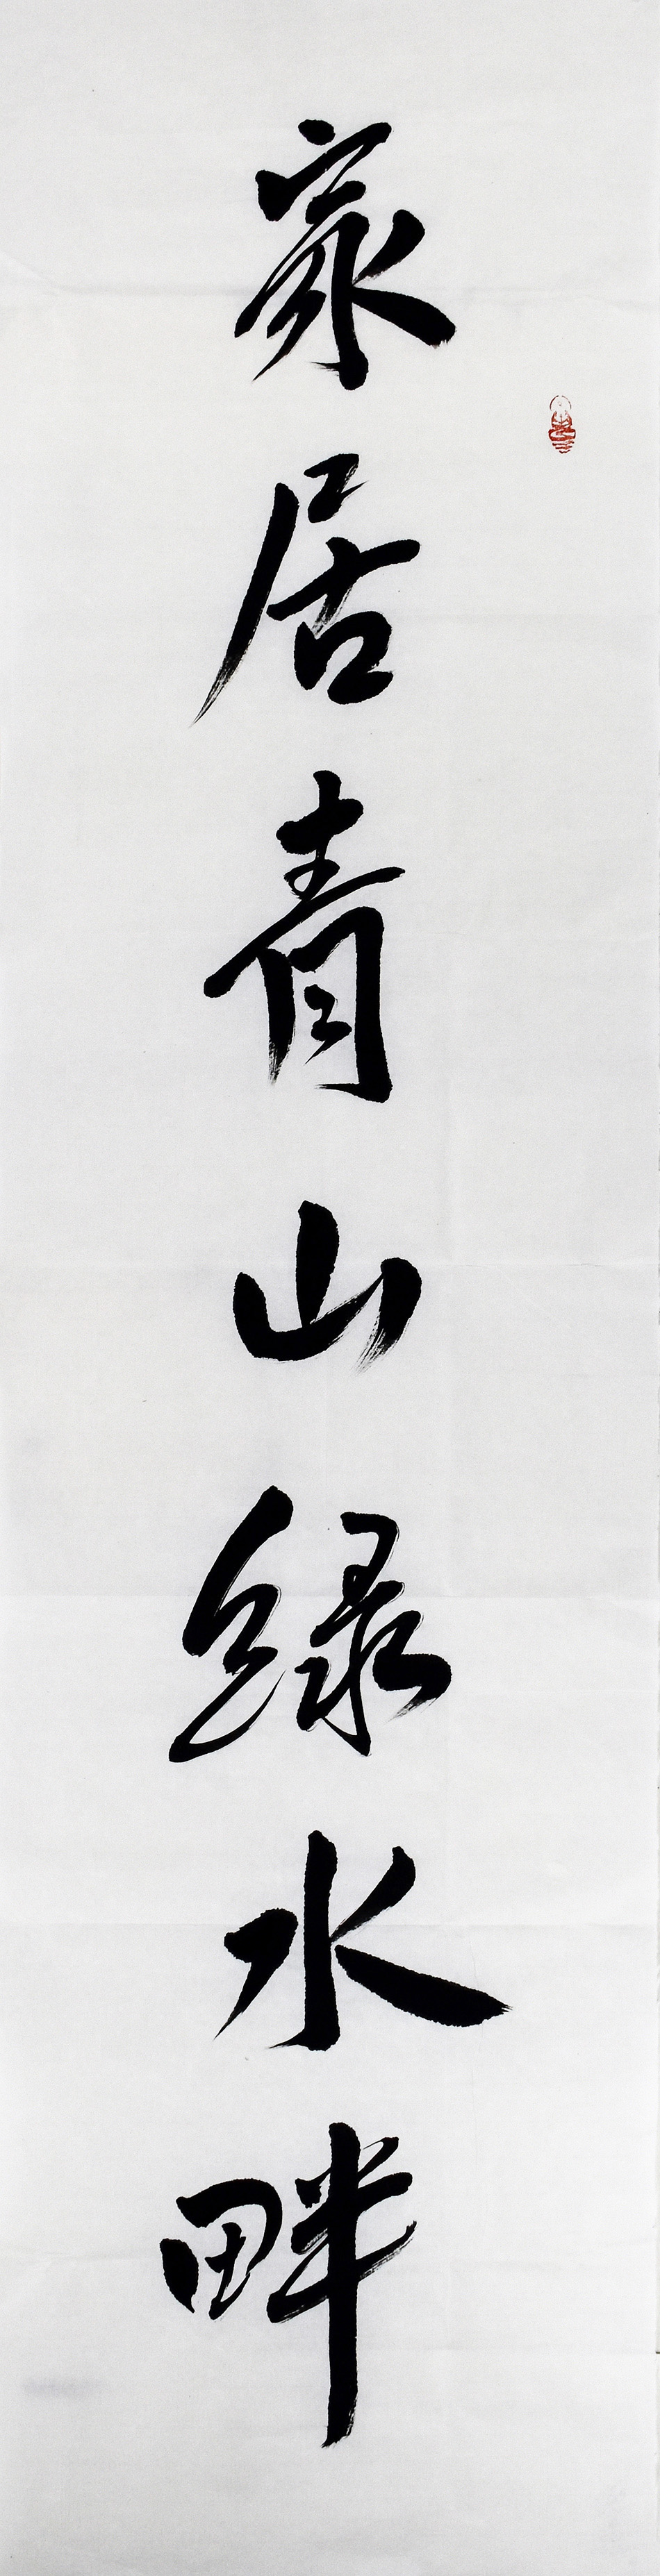 家居青山绿水畔